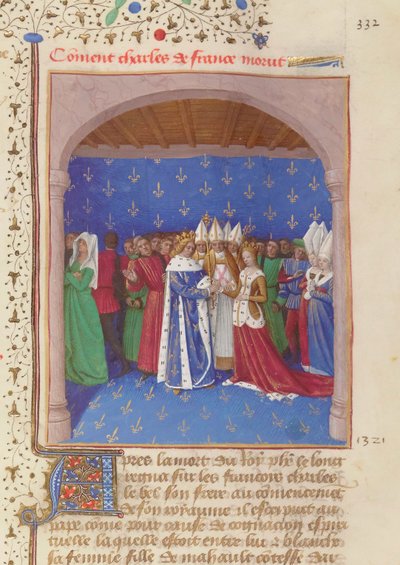 332
Cōment charles de france morut
1321
Apres la mort du roy phē le long
regna sur les francois charles
le bel son frere au commencement
de son royaume il escript au
pape cōme pour cause de cognacion espiri
tuelle laquelle estoit entre lui z blanche
sa femme fille de mahault cōtesse dar